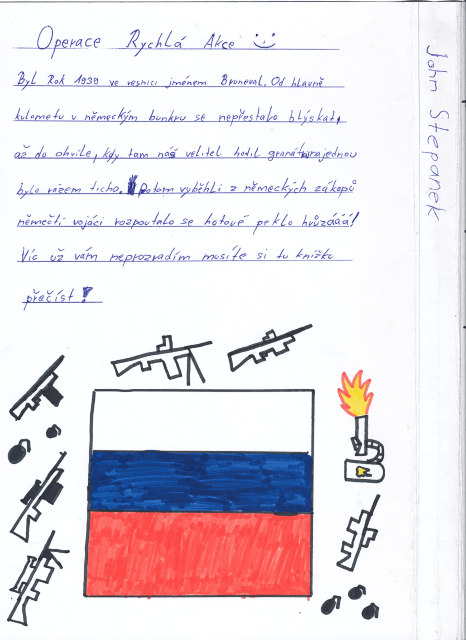 Operace Rychlá Akce :-)
Byl Rok 1939 ve vesnici jménem Bruneval. Od hlavně
kulometu v německým bunkru se nepřestalo blýskat,
až do chvíle, kdy tam náš velitel hodil granát najednou
bylo rázem ticho. Potom vyběhli z německých zákopů
němečtí vojáci rozpoutalo se hotové peklo hrůzááá!
Víc už vám neprozradím musíte si tu knížku
přečíst!
John Stepanek